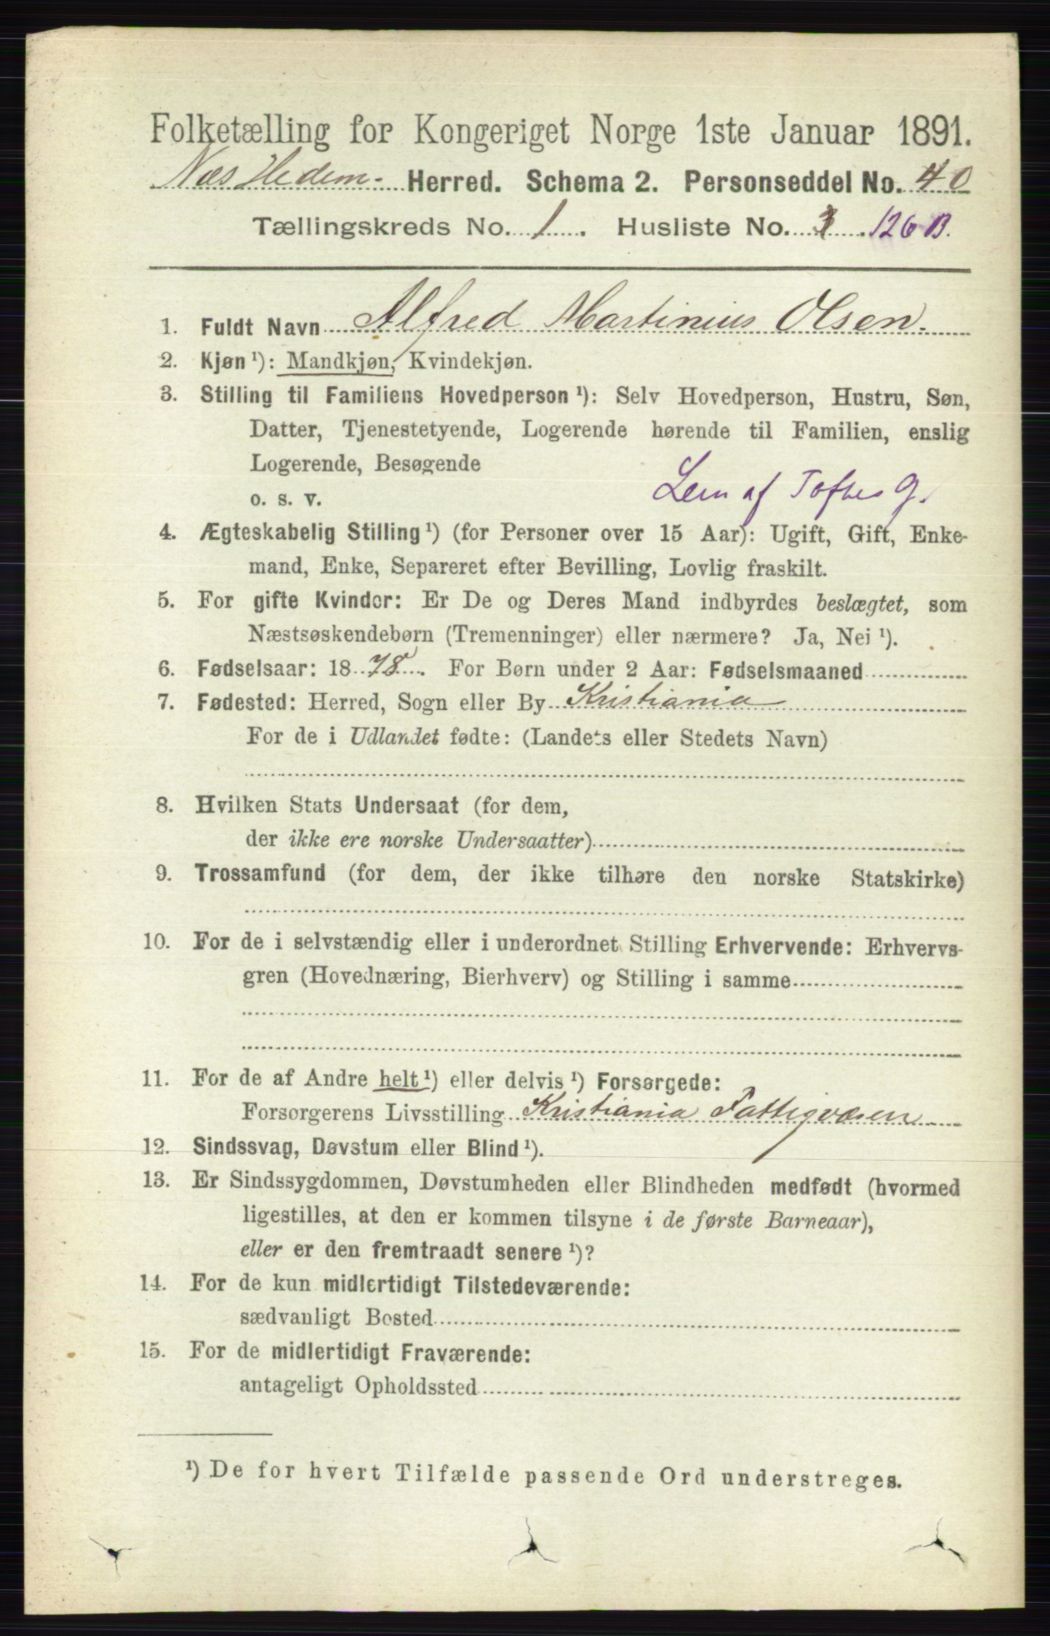 Folketælling for Kongeriget Norge 1ste Januar 1891.
Næs Hedem. Herred. Schema 2. Personseddel No. 40
Tællingskreds No. 1. Husliste No. 3. 126 B.
1. Fuldt Navn Alfred Martinius Olsen.
2. Kjøn ¹): Mandkjøn, Kvindekjøn.
3. Stilling til Familiens Hovedperson ¹): Selv Hovedperson, Hustru, Søn,
Datter, Tjenestetyende, Logerende hørende til Familien, enslig
Logerende, Besøgende
o. s. v. Lem af Toftes G.
4. Ægteskabelig Stilling ¹) (for Personer over 15 Aar): Ugift, Gift, Enke-
mand, Enke, Separeret efter Bevilling, Lovlig fraskilt.
5. For gifte Kvinder: Er De og Deres Mand indbyrdes beslægtet, som
Næstsøskendebørn (Tremenninger) eller nærmere? Ja, Nei ¹).
6. Fødselsaar: 1878. For Børn under 2 Aar: Fødselsmaaned
7. Fødested: Herred, Sogn eller By Kristiania
For de i Udlandet fødte: (Landets eller Stedets Navn)
8. Hvilken Stats Undersaat (for dem,
der ikke ere norske Undersaatter)
9. Trossamfund (for dem, der ikke tilhøre den norske Statskirke)
10. For de i selvstændig eller i underordnet Stilling Erhvervende: Erhvervs-
gren (Hovednæring, Bierhverv) og Stilling i samme
11. For de af Andre helt ¹) eller delvis ¹) Forsørgede:
Forsørgerens Livsstilling Kristiania Fattigvæsen
12. Sindssvag, Døvstum eller Blind ¹).
13. Er Sindssygdommen, Døvstumheden eller Blindheden medfødt (hvormed
ligestilles, at den er kommen tilsyne i de første Barneaar),
eller er den fremtraadt senere ¹)?
14. For de kun midlertidigt Tilstedeværende:
sædvanligt Bosted
15. For de midlertidigt Fraværende:
antageligt Opholdssted
¹) De for hvert Tilfælde passende Ord understreges.